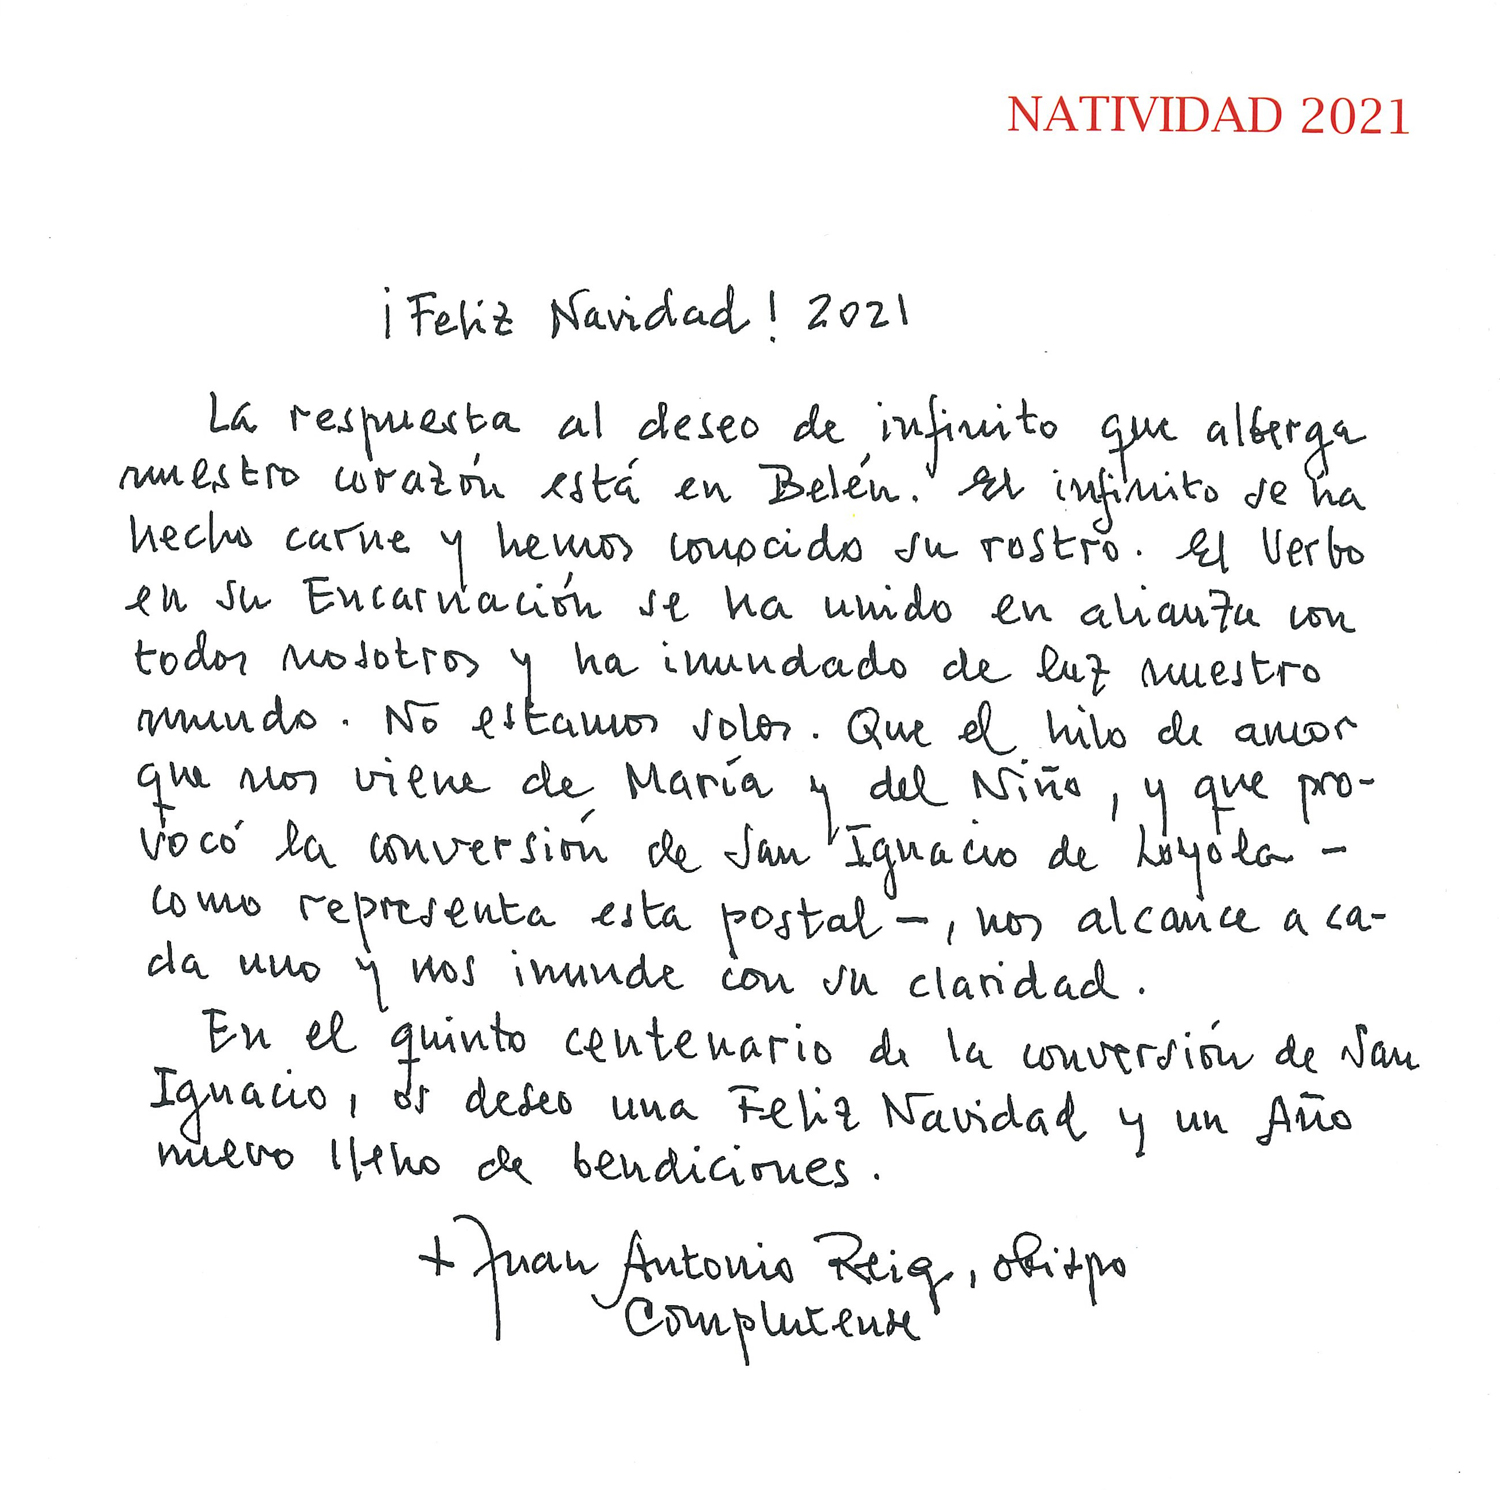 NATIVIDAD 2021
¡Feliz Navidad! 2021
La respuesta al deseo de infinito que alberga
nuestro corazón está en Belén. El infinito se ha
hecho carne y hemos conocido su rostro. El Verbo
en su Encarnación se ha unido en alianza con
todos nosotros y ha inundado de luz nuestro
mundo. No estamos solos. Que el hilo de amor
que nos viene de María y del Niño, y que pro-
vocó la conversión de San Ignacio de Loyola -
como representa esta postal -, nos alcance a ca-
da uno y nos inunde con su claridad.
En el quinto centenario de la conversión de San
Ignacio, os deseo una Feliz Navidad y un Año
nuevo lleno de bendiciones.
+ Juan Antonio Reig, obispo
Complutense